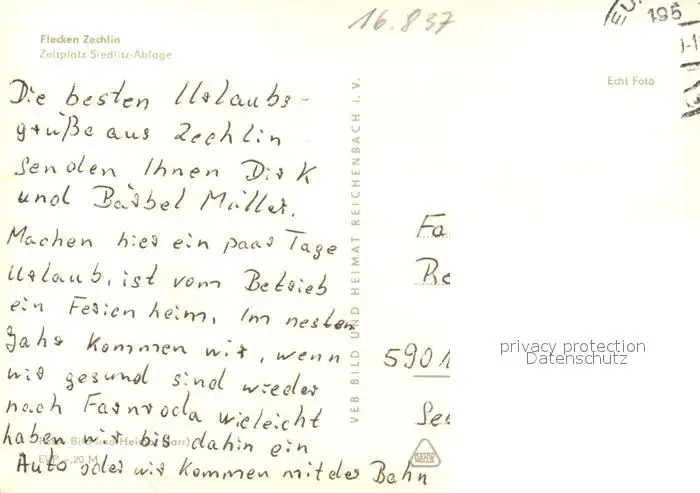 16.837
195
Flecken Zechlin
Zeltplatz Siedlitz-Ablage
Echt Foto
Die besten Urlaubs-
grüße aus Zechlin
senden Ihnen Dirk
und Bärbel Müller.
Machen hier ein paar Tage
Urlaub, ist vom Betrieb
ein Ferienheim. Im nesten
Jahr kommen wir, wenn
wir gesund sind wieder
nach Farnroda vieleicht
haben wir bis dahin ein
Auto oder wir kommen mit der Bahn
VEB BILD UND HEIMAT REICHENBACH I. V.
Fa
Re
5901
See
privacy protection
Datenschutz
Bild und Heimat
EVP -,20 M